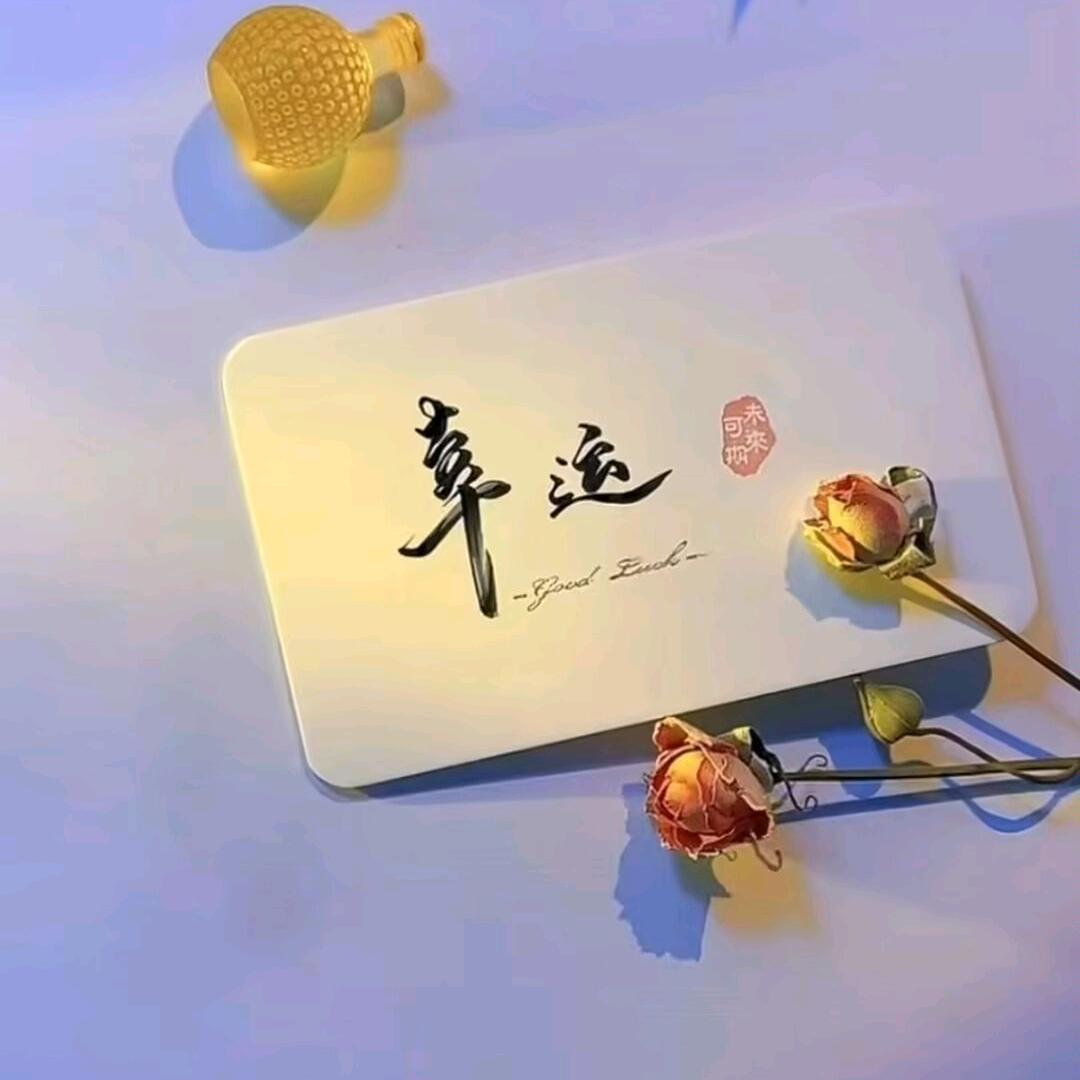 幸运
-Good Luck-
未來
可期